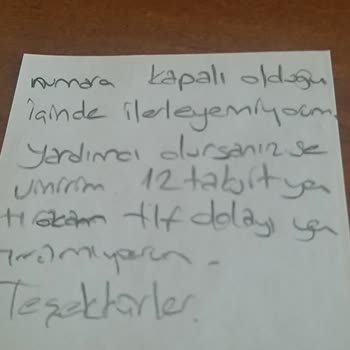 numara kapalı olduğu
içinde ilerleyemiyocm
yardımcı olursanız se
vinirim 12 taksit ya
tlf dolayı ya
Teşekkürler.